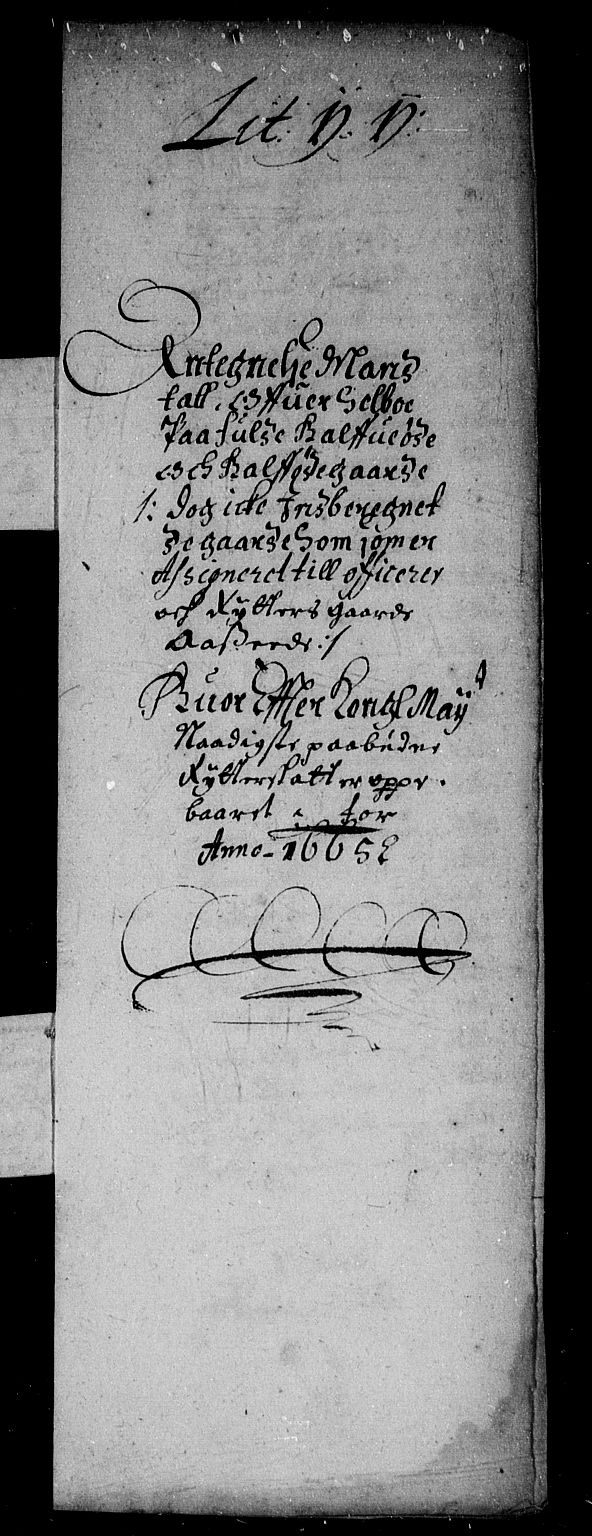 Lit: n. n:
Antegnelse Mands
tall, offuer Selboe
Paa fulde Halffue øde
och Halfføde gaarde
/: dog icke Indberegnet
de gaarde som som er
Assigneret till officerer
och Rytters gaarde
Huor Effter Kongl May
Naadigste paabudne
Rytterskatt er oppe.
baaret for
Anno 1665